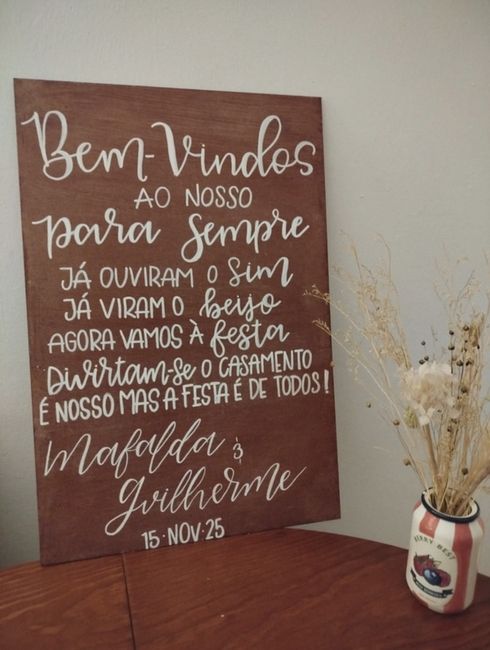 Bem-Vindos
AO NOSSO
para sempre
JÁ OUVIRAM O Sim
JÁ VIRAM O beijo
AGORA VAMOS À festa
Divirtam-se O CASAMENTO
É NOSSO MAS A FESTA É DE TODOS!
Mafalda &
Guilherme
15·NOV·25
BERRY BEST